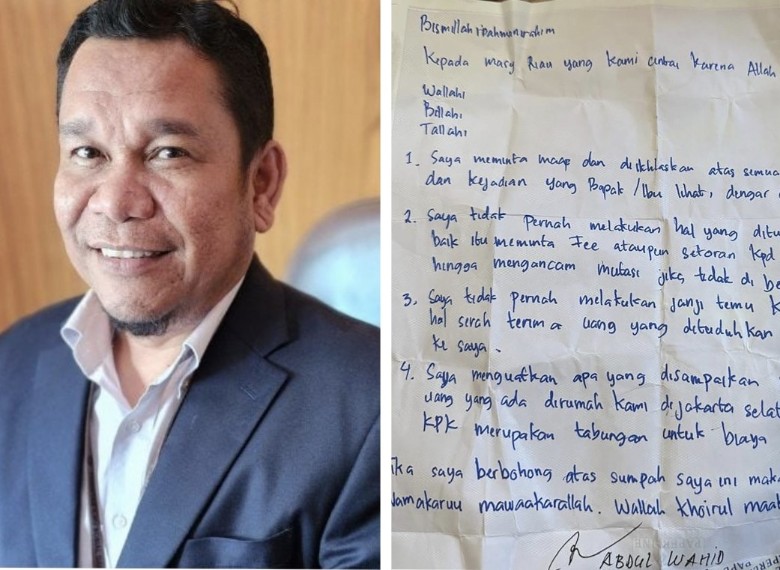 Bismillahirrahmanirrahim
Kepada masy Riau yang kami cintai karena Allah
Wallahi
Billahi
Tallahi
1. Saya meminta maap dan diikhlaskan atas semua
dan kejadian yang Bapak/Ibu lihat, dengar
2. Saya tidak pernah melakukan hal yang ditu
baik itu meminta Fee ataupun setoran kpd
hingga mengancam mutasi jika tidak di be
3. Saya tidak pernah melakukan janji temu k
hal serah terima uang yang dituduhkan
ke saya.
4. Saya menguatkan apa yang disampaikan
uang yang ada dirumah kami dijakarta selat
KPK merupakan tabungan untuk biaya
ika saya berbohong atas sumpah saya ini maka
wamakaruu mawaakarallah. Wallah khoirul maa
ABDUL WAHID